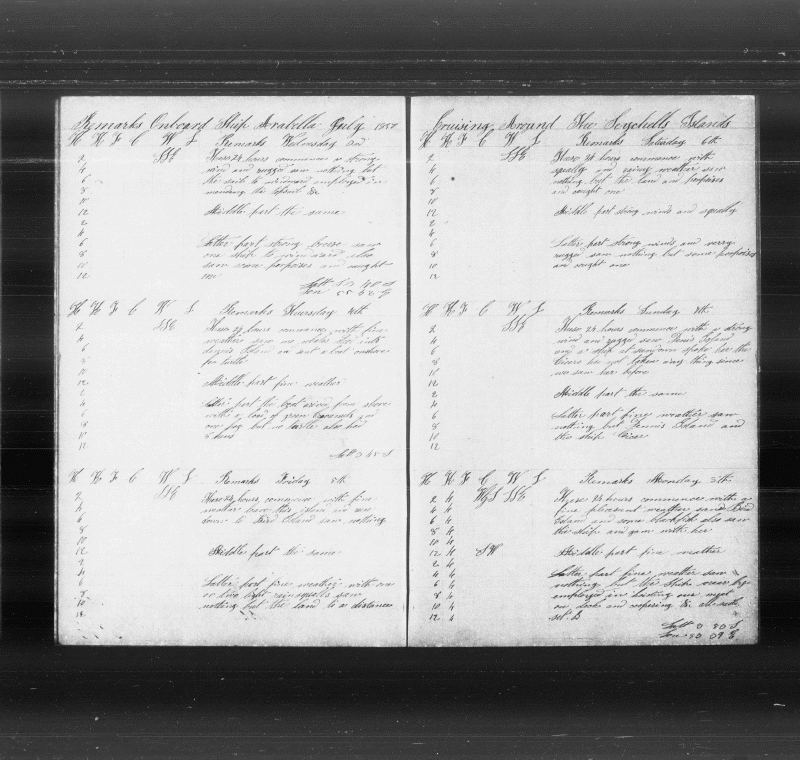 Remarks Onboard Ship Arabella July 1850
H K F C W L Remarks Wednesday 3rd
2 SSE These 24 hours commence a strong
4 wind and rugged saw nothing but
6 the sails to windward employed in
8 mending the
10
12 Middle part the same
2
4
6 Latter part strong breeze saw
8 one ship to windward also
10 saw some porpoises and caught
12 one
Latt
Lon
H K F C W L Remarks Thursday 4th
2 SSE These 24 hours commence with fine
4 weather saw no whales
6 Island sent a boat onshore
8 for turtle
10
12 Middle part fine weather
2
4 Latter part the boat arived from shore
6 with a load of green Cocoanuts and
8 one pig but no turtle also had
10 hens
12
Latt
H K F C W L Remarks Friday 5th
2 SSE These 24 hours commence with fine
4 weather bore this Island and run
6 down to Bird Island saw nothing
8
10
12 Middle part the same
2
4
6 Latter part fine weather with one
8 or two light rain squalls saw
10 nothing but the land to a distance
12
Cruising Around The Seychells Islands
H K F C W L Remarks Saturday 6th
2 SSE These 24 hours commence with
4 squally and rainy weather saw
6 nothing but the land and porpoises
8 and caught one
10
12 Middle part strong winds and squally
2
4
6 Latter part strong winds and verry
8 rugged saw nothing but some porpoises
10 and caught one
12
H K F C W L Remarks Sunday 7th
2 SSE These 24 hours commence with a strong
4 wind and rugged saw Dennis Island
6 and a ship at spoke her the
8 has not taken any thing since
10 we saw her before
12
2 Middle part the same
4
6 Latter part fine weather saw
8 nothing but Dennis Island and
10 the ship
12
H K F C W L Remarks Monday 8th
2 4 SSE These 24 hours commence with a
4 4 fine pleasant weather saw Bird
6 4 Island and some blackfish also saw
8 4 the ship and gam with her
10 4
12 4 SW Middle part fine weather
2 4
4 4 Latter part fine weather saw
6 4 nothing but the ship
8 4 employed in
10 4 on deck and coopering &c
12 4
Latt 0 50 S
Lon 50 09 E